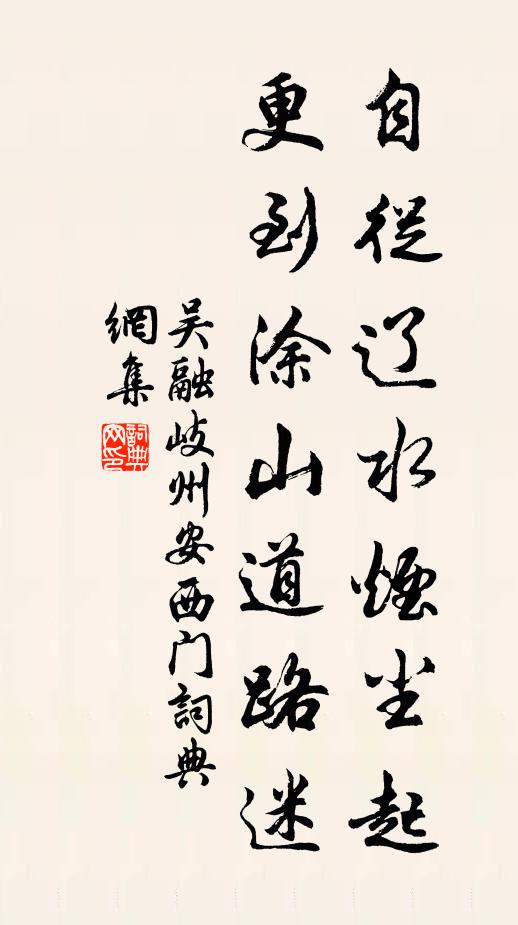 自從辽水煙尘起
更到涂山道路迷
吴融岐州安西门詞典
網集
詞典
网印